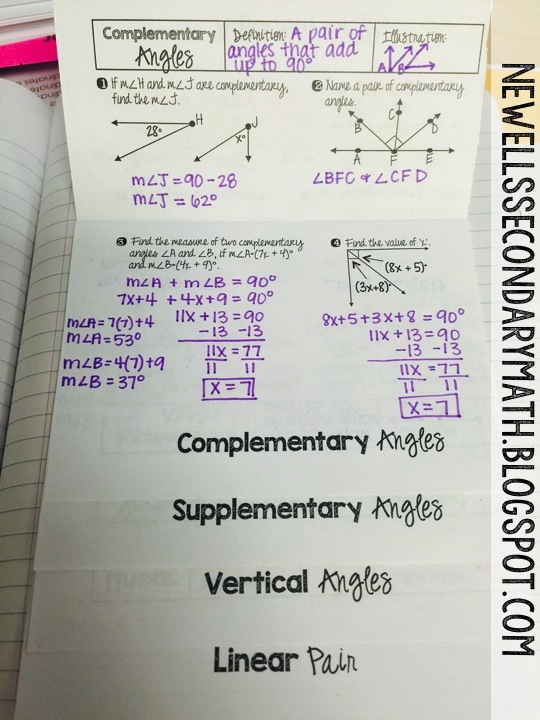 Complementary Angles
Definition: A pair of
angles that add
up to 90°
Illustration:
A B
❶ If m∠H and m∠J are complementary,
find the m∠J.
28° H
J
x°
m∠J = 90 - 28
m∠J = 62°
❷ Name a pair of complementary
angles.
B C D
A F E
∠BFC & ∠CFD
❸ Find the measure of two complementary
angles ∠A and ∠B, if m∠A=(7x + 4)°
and m∠B=(4x + 9)°.
m∠A + m∠B = 90°
7x+4 + 4x+9 = 90°
11x + 13 = 90
-13 -13
11x = 77
11 11
x = 7
m∠A = 7(7)+4
m∠A = 53°
m∠B = 4(7)+9
m∠B = 37°
❹ Find the value of 'x'.
(8x + 5)°
(3x+8)°
8x+5+3x+8 = 90°
11x+13 = 90
-13 -13
11x = 77
11 11
x = 7
Complementary Angles
Supplementary Angles
Vertical Angles
Linear Pair
NEWELLSSECONDARYMATH.BLOGSPOT.COM